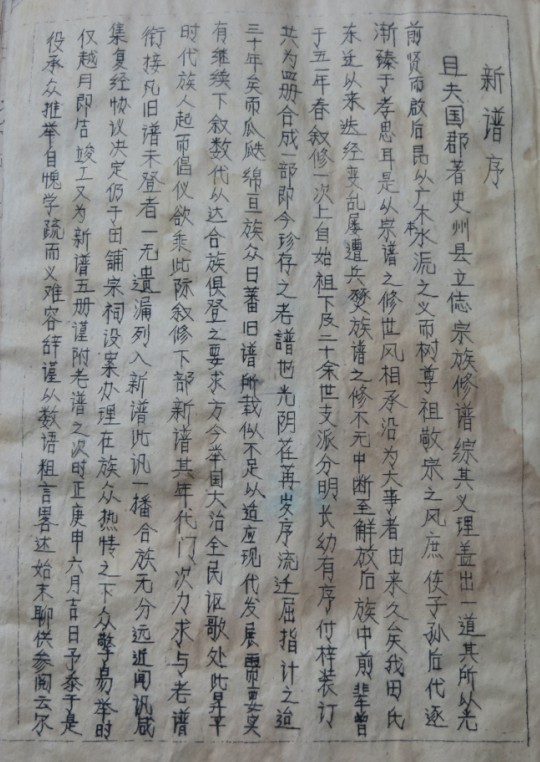 新谱序
且夫国郡著史州县立志宗族修谱综其义理盖出一道其所以光
前贤而啟后昆以广木本水沅之义而树尊祖敬宗之风庶使子孙后代逐
渐臻于孝思耳是从宗谱之修世风相承沿为大事者由来久矣我田氏
东迁以来迭经变乱屡遭兵燹族谱之修不无中断至解放后族中前辈曾
于五一年春叙修一次上自始祖下及二十余世支派分明长幼有序付梓装订
共为四册合成一部即今珍存之老譜也光阴荏苒岁序流迁屈指计之迨
三十年矣而瓜瓞綿亘族众日蕃旧谱所载似不足以适应现代发展需要实
有继续下叙数代以达合族俱登之要求方今举国大治全民讴歌处此昇平
时代族人起而倡仪欲乘此际叙修下部新谱其年代门次力求与老谱
衔接凡旧谱未登者一无遗漏列入新谱此讯一播合族无分远近闻讯咸
集复经协议决定仍于田舖宗祠设案办理在族众热情之下众擎易举时
仅越月即告竣工又为新谱五册谨附老谱之次时正庚申六月吉日予忝于是
役承众推举自愧学疏而义难容辞谨以数语粗言畧述始末聊供参阅云尔